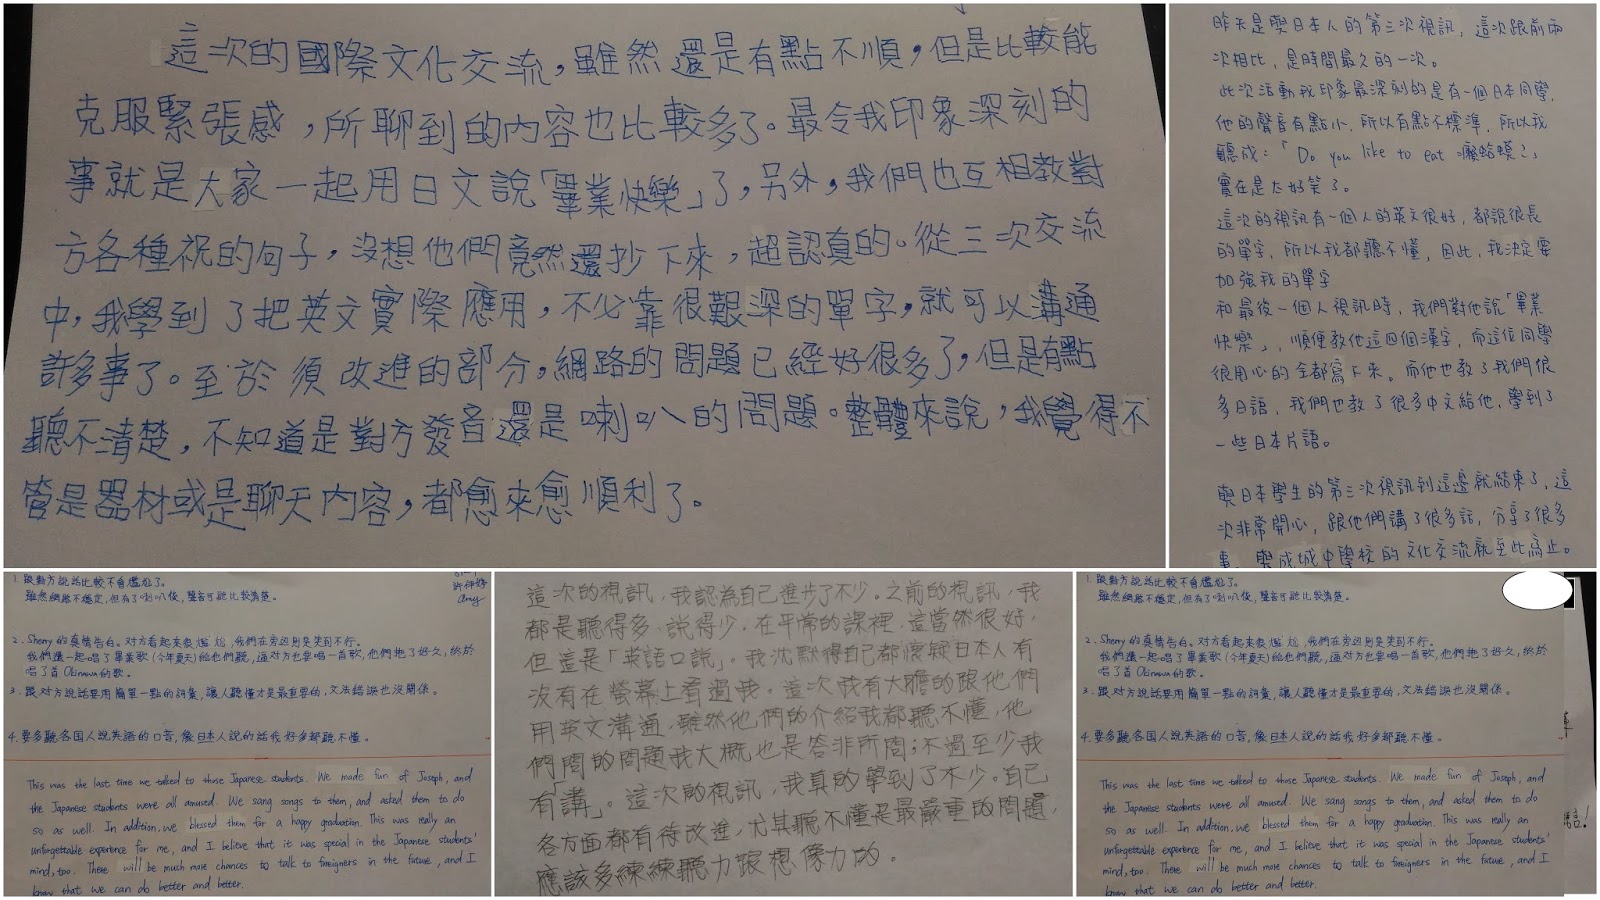 這次的國際文化交流，雖然還是有點不順，但是比較能
克服緊張感，所聊到的內容也比較多了。最令我印象深刻的
事就是大家一起用日文說「畢業快樂」了，另外，我們也互相教對
方各種祝的句子，沒想他們竟然還抄下來，超認真的。從三次交流
中，我學到了把英文實際應用，不必靠很艱深的單字，就可以溝通
許多事了。至於須改進的部分，網路的問題已經好很多了，但是有點
聽不清楚，不知道是對方發音還是喇叭的問題。整體來說，我覺得不
管是器材或是聊天內容，都愈來愈順利了。
昨天是與日本人的第三次視訊，這次跟前兩
次相比，是時間最久的一次。
此次活動我印象最深刻的是有一個日本同學，
他的聲音有點小，所以有點不標準，所以我
聽成：「Do you like to eat 癩蛤蟆？」
實在是太好笑了。
這次的視訊有一個人的英文很好，都說很長
的單字，所以我都聽不懂，因此，我決定要
加強我的單字
和最後一個人視訊時，我們對他說「畢業
快樂」，順便教他這四個漢字，而這位同學
很用心的全都寫下來。而他也教了我們很
多日語，我們也教了很多中文給他，學到了
一些日本片語。
與日本學生的第三次視訊到這邊就結束了，這
次非常開心，跟他們講了很多話，分享了很多
事，與成城中學校的文化交流就至此為止。
1. 跟對方說話比較不會尷尬了。
雖然網路不穩定，但有了喇叭後，聲音可聽比較清楚。
Amy
2. Sherry的真情告白。对方看起來很尴尬，我們在旁边則是笑到不行。
我們還一起唱了畢業歌(今年夏天)給他們聽，逼对方也要唱一首歌，他們拖了好久，終於
唱了首Okinawa的歌。
3. 跟对方說話要用簡單一點的詞彙，讓人聽懂才是最重要的，文法錯誤也沒關係。
4. 要多聽各国人說英語的口音，像日本人說的話我好多都聽不懂。
This was the last time we talked to those Japanese students. We made fun of Joseph, and
the Japanese students were all amused. We sang songs to them, and asked them to do
so as well. In addition, we blessed them for a happy graduation. This was really an
unforgettable experience for me, and I believe that it was special in the Japanese students'
mind, too. There will be much more chances to talk to foreigners in the future, and I
know that we can do better and better.
這次的視訊，我認為自己進步了不少。之前的視訊，我
都是聽得多，說得少，在平常的課裡，這當然很好，
但這是「英語口說」。我沈默得自己都懷疑日本人有
沒有在螢幕上看過我。這次我有大膽的跟他們
用英文溝通，雖然他們的介紹我都聽不懂，他
們問的問題我大概也是答非所問；不過至少我
有「講」。這次的視訊，我真的學到了不少。自己
各方面都有待改進，尤其聽不懂是最嚴重的問題，
應該多練練聽力跟想像力的。
1. 跟對方說話比較不會尷尬了。
雖然網路不穩定，但有了喇叭後，聲音可聽比較清楚。
2. Sherry的真情告白。对方看起來很尴尬，我們在旁边則是笑到不行。
我們還一起唱了畢業歌(今年夏天)給他們聽，逼对方也要唱一首歌，他們拖了好久，終於
唱了首Okinawa的歌。
3. 跟对方說話要用簡單一點的詞彙，讓人聽懂才是最重要的，文法錯誤也沒關係。
4. 要多聽各国人說英語的口音，像日本人說的話我好多都聽不懂。
This was the last time we talked to those Japanese students. We made fun of Joseph, and
the Japanese students were all amused. We sang songs to them, and asked them to do
so as well. In addition, we blessed them for a happy graduation. This was really an
unforgettable experience for me, and I believe that it was special in the Japanese students'
mind, too. There will be much more chances to talk to foreigners in the future, and I
know that we can do better and better.